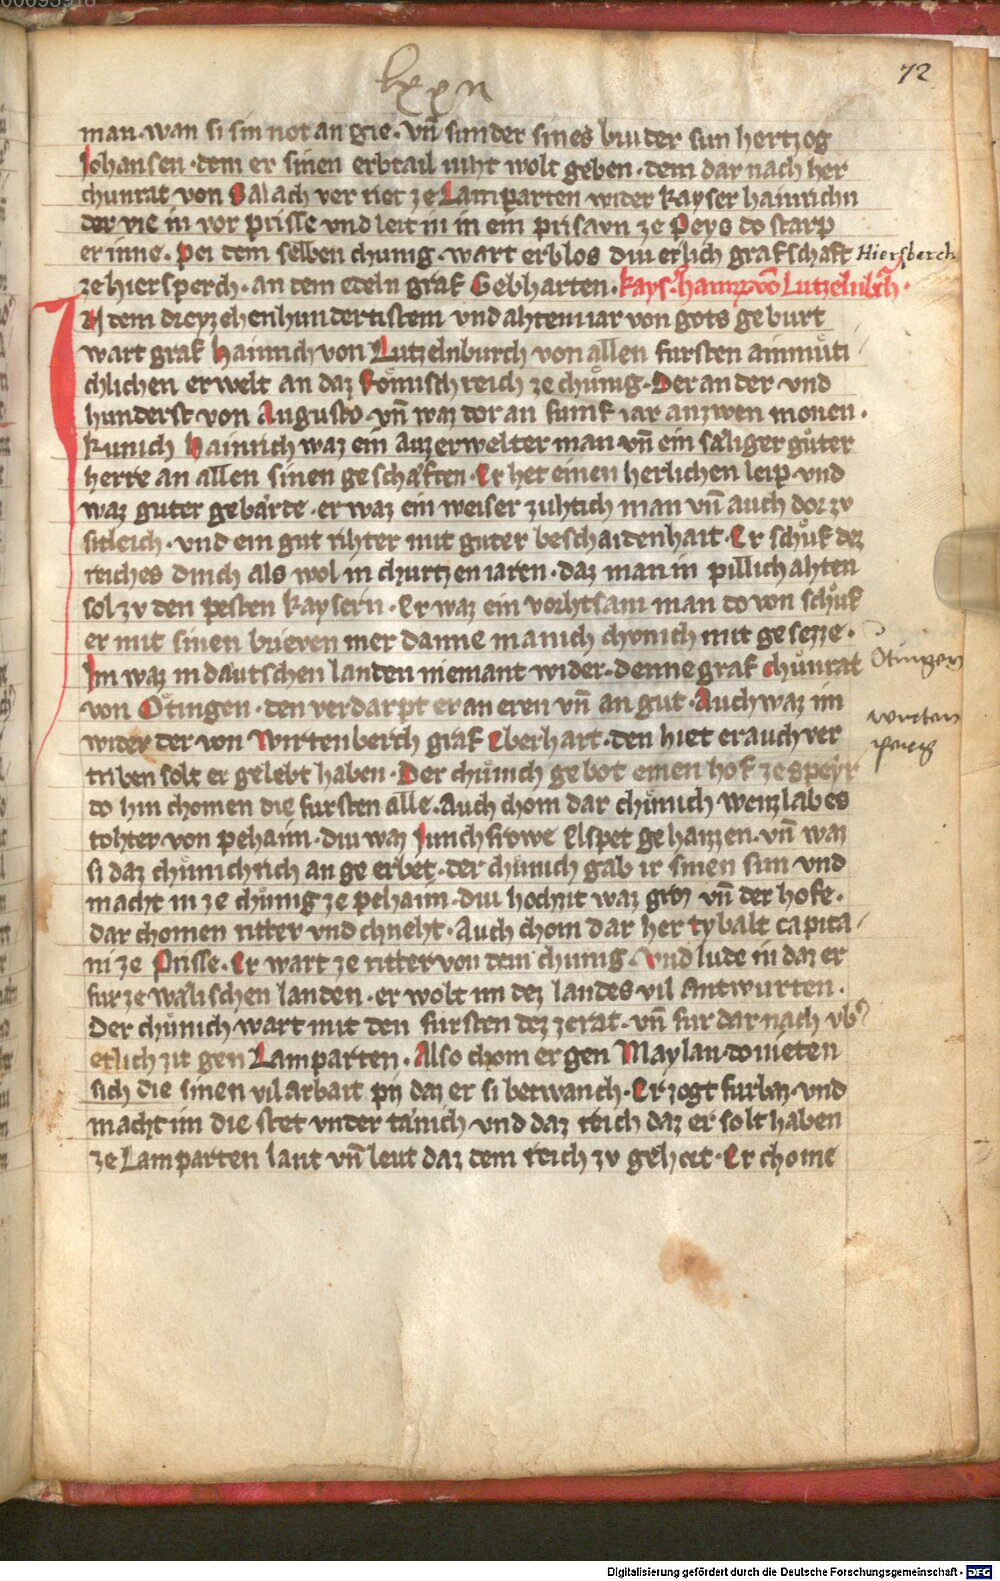 lxxii
72
man · wan si sin not an gie · vn̄ sunder sines bruder sun hertzog
Johansen · dem er sinen erbtail niht wolt geben · dem dar nach her
chunrat von Salach ver riet ze Lamparten wider kayser hainrichn
der vie in vor prisse vnd leit in in ein prisavn ze Peys do starp
er inne · Pei dem selben chunig · wart erblos diu erlich grafschaft
Hiersberch
ze hiersperch · an dem edeln graf Gebharten ·
kays · hainr vō Lutzelnbch ·
In dem dreyzehenhundertistem vnd ahten iar von gots geburt
wart graf hainrich von Lutzelnburch von allen fursten ainmuͤti
chlichen erwelt an daz Roͤmisch reich ze chuͤnig · Der ander vnd
hunderst von Augusto · vn̄ waz dor an funf iar an zwen monen ·
kunich hainrich waz ein auzerwelter man vn̄ ein sæliger guͤter
herre an allen sinen geschæften · Er het einen herlichen leip · vnd
waz guter gebærde · er waz ein weiser zuhtich man vn̄ auch dor zv
sitleich · vnd ein gut rihter mit guter beschaidenhait · Er schuͤf dez
reiches dinch als wol in churtzen iaren · daz man in pillich ahten
sol zv den pesten kaysern · Er waz ein vorhtsam man do von schuͤf
er mit sinen brieven mer danne manich chvnich mit gesezze ·
Im waz in dautschen landen niemant wider · denne graf chuͤnrat
Otingen
von Oͤtingen · den verdarpt er an eren vn̄ an gut · Auch waz im
wirten
perg
wider der von Wirtenberch graf Eberhart · den hiet er auch ver
triben solt er gelebt haben · Der chuͤnich gebot einen hof ze speyr
do hin chomen die fursten alle · Auch chom dar chuͤnich wenzlabes
tohter von pehaim · diu waz Junchfrowe Elspet gehaizzen · vn̄ waz
si daz chuͤnichrich an geerbet · der chuͤnich gab ir sinen sun · vnd
macht in ze chuͤnig ze pehaim · diu hochzit waz groz vn̄ der hofe ·
dar chomen ritter vnd chneht · Auch chom dar her tybalt capita
ni ze Prisse · Er wart ze ritter von dem chunig · Vnd lude in daz er
fur ze wælischen landen · er wolt im dez landes vil antwurten ·
Der chuͤnich wart mit den fursten dez ze rat · vn̄ fur dar nach vb
etlich zit gen Lamparten · Also chom er gen Maylan · do nieten
sich die sinen vil arbait piz daz er si betwanch · Er zogt furbaz · vnd
macht im die stet vnder tænich · vnd daz reich daz er solt haben
ze Lamparten lant vn̄ leut daz dem reich zv gehoret · Er chome
Digitalisierung gefördert durch die Deutsche Forschungsgemeinschaft - DFG